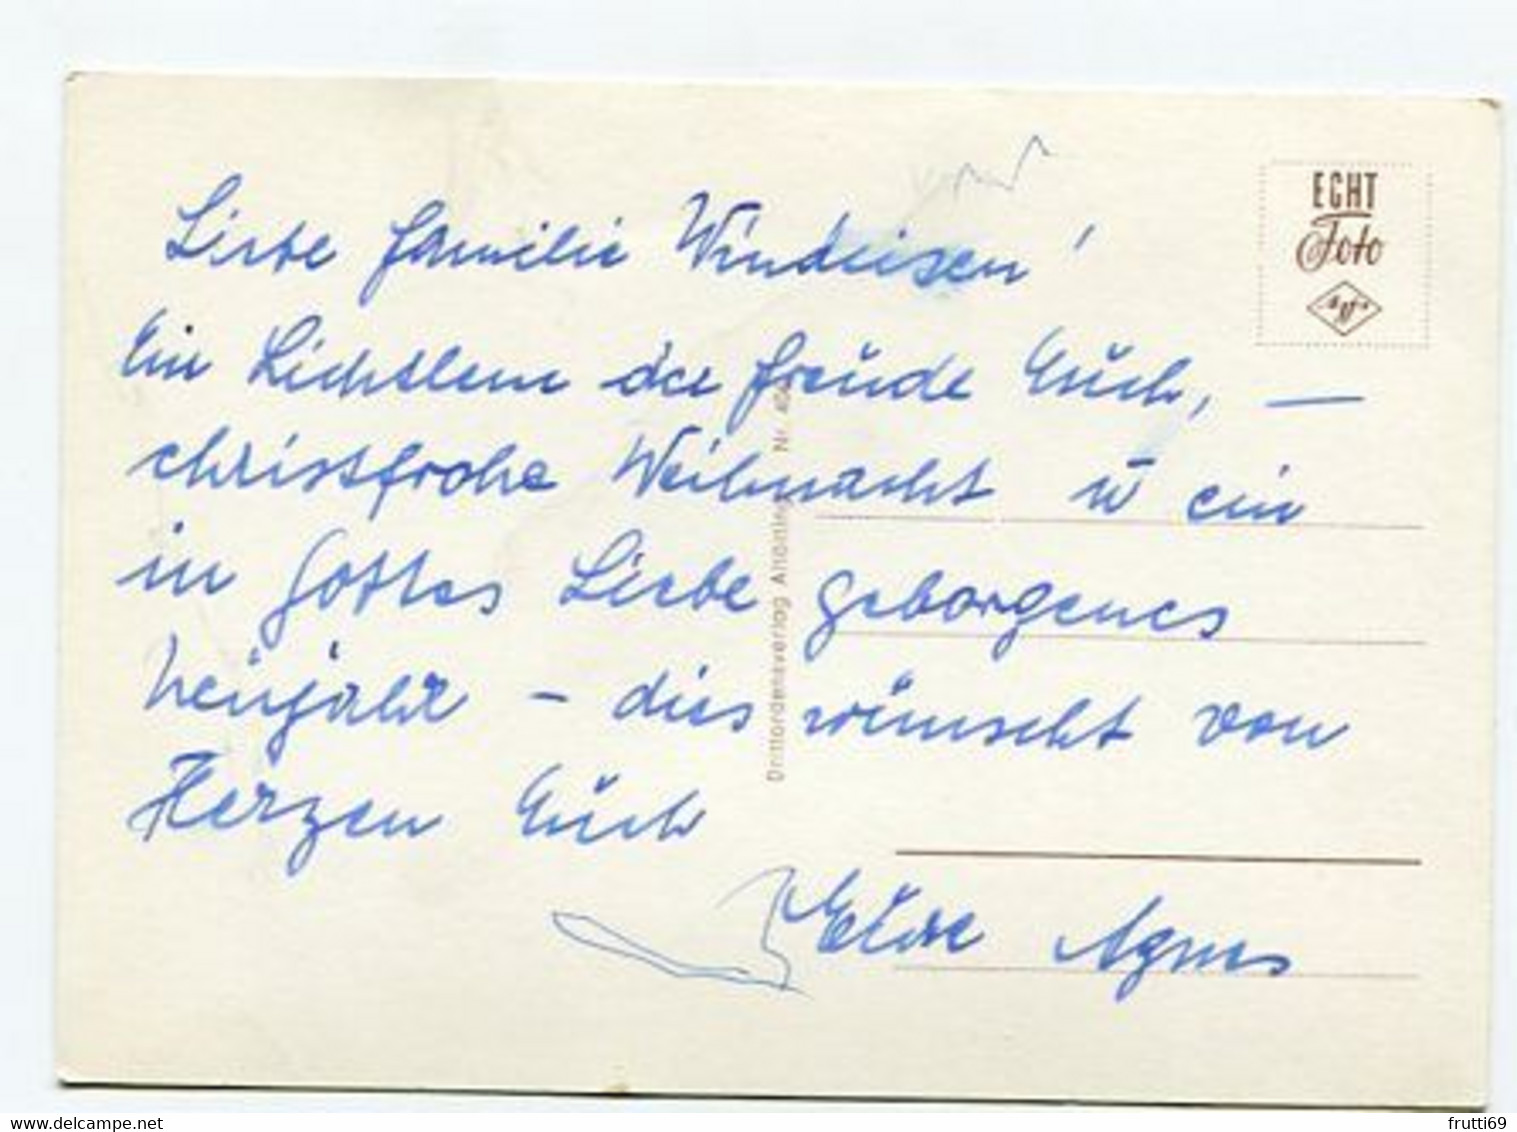 Liebe Familie Windeisen!
Ein Lichtlein der Freude Euch, —
christfrohe Weihnacht u ein
in Gottes Liebe geborgenes
Neujahr – dies wünscht von
Herzen Euch
Eure Agnes
ECHT
Foto
Agfa
Drittordensverlag Altötting Nr.
www.delcampe.net
frutti69